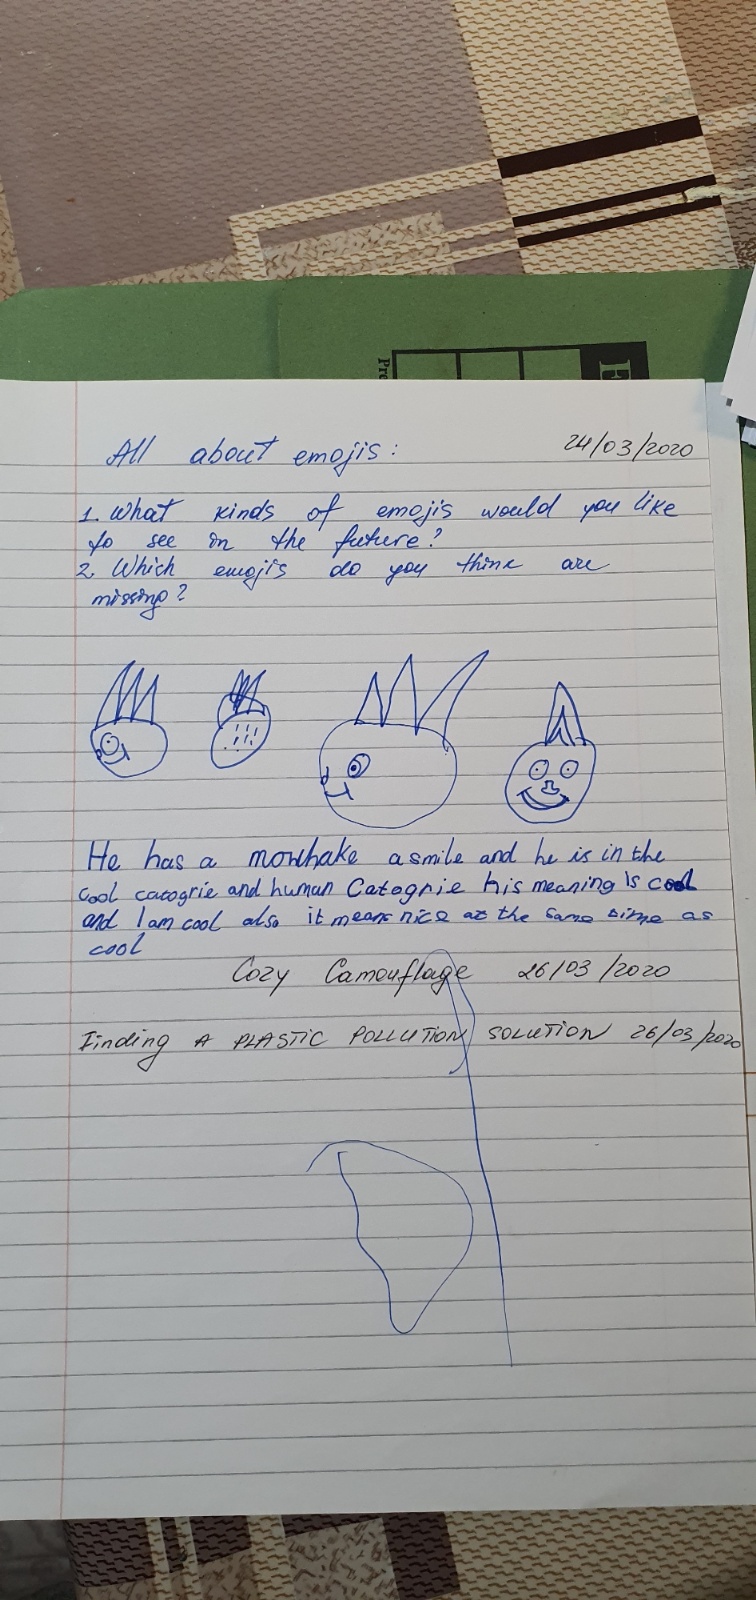 All about emojis: 24/03/2020
1. What kinds of emojis would you like
to see in the future?
2. Which emojis do you think are
missing?
He has a mowhake a smile and he is in the
cool catogrie and human Catogrie his meaning is cool
and I am cool also it means nice at the same time as
cool
Cozy Camouflage 26/03/2020
Finding A PLASTIC POLLUTION SOLUTION 26/03/2020